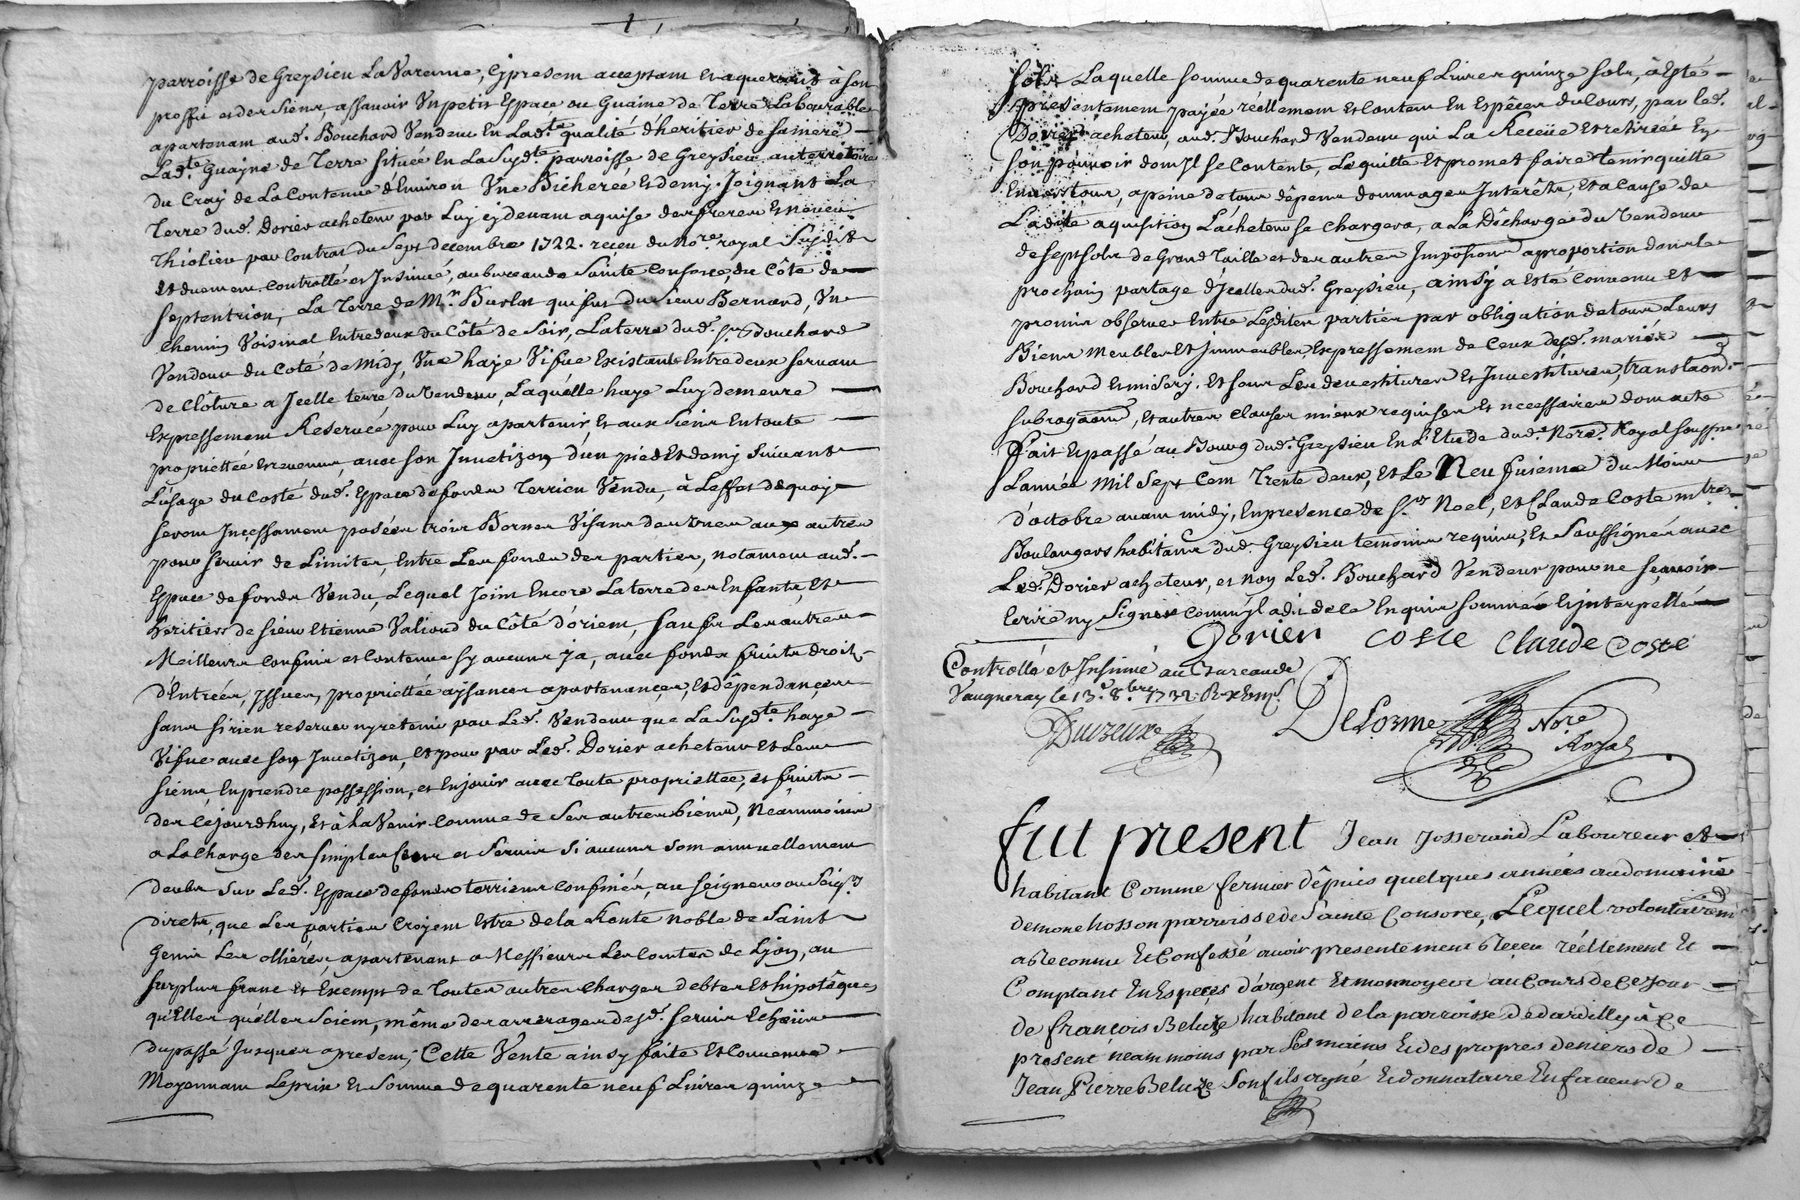 parroisse de Greysieu La Varenne, cy present acceptant et aquereur à son
proffit et des siens assavoir Un petit Espace ou Guaine de Terre Labourable
apartenant aud. Bouchard Vendeur En Lad.te qualité d'heritier de sa mere
Lad.te Guayne de Terre située En La Susd.te parroisse de Greysieu au territoire
du Cray de La Contenue d'Environ Une Bicherée et demy. Joignant La
Terre dud. Dorier acheteur par Luy cy devant aquise des freres et neveu
Thiolier par Contrat du Sept decembre 1722. receu du No.re royal Susdit
et duement Controllé et Insinué, au bureau de Sainte Consorce, du Côté de
septentrion, La Terre de M.r Burlat qui fut du Sieur Bernard, Un
Chemin Voisinal Entredeux du Côté de Soir, La terre dud. Sr. Bouchard
Vendeur du Coté de Midy, Une haye Vifue Existante Entre deux servant
de Cloture a Jcelle terre du Vendeur, Laquelle haye Luy demeure
Expressement Reservée pour Luy apartenir et aux Siens En toute
proprietée et revenus, avec son Jnvetizon d'un pied et demy Suivant
L'usage du Costé dud. Espace de fonds Terrien Vendu, à L'effet dequoy
seront Jncessament posées trois Bornes Visant des Unes aux autres
pour servir de Limites, Entre Les fonds des parties, notament aud.
Espace de fonds Vendu, Lequel Joint Encore La terre des Enfants, et
heritiers de sieur Etienne Valioud du Côté d'orient, sauf ses Les autres
Meilleurs Confins et Contenus sy aucuns y a, avec fonds fruits droits
d'Entrées, Jssues, proprietée aysances apartenances, et dépendances
sans si rien reserver ny retenir par Led. Vendeur que La Susd.te haye
Vifue avec son Jnvetizon, et pour par Led. Dorier acheteur et Les
siens, En prendre possession, et En jouir avec toute proprietée, et fruits
des Cejourdhuy, et à L'avenir Comme de Ses autres biens, Neammoins
a La Charge des simples Cens et Servis Si aucuns sont annuellement
deubs sur Led. Espace de fonds terriens Confinés, au seigneur ou Seig.rs
directs, que Les parties Croyent Estre de la Rente noble de Saint
Genis Les ollières, apartenant a Messieurs Les Comtes de Lyon, au
surplus franc et Exempt de toutes autres Charges debtes et hipotêques
qu'Elles quélles Soient, même des arrerages desd. servis Echeüs
du passé Jusques apresent; Cette Vente ainsy faite et Convenue
Moyennant Le prix et Somme de quarente neuf Livres quinze
Sols Laquelle somme de quarente neuf Livres quinze sols, à Esté
presentement payée réellement et Contant En Espèces du Cours, par Led.
Dorier acheteur, aud. Bouchard Vendeur qui La Receüe et retirée En
son pouvoir dont Jl se Contente, Le quitte et promet faire tenir quitte
Envers tous, a peine de tous dépens dommages Interêts, et a Cause de
La dite aquisition L'acheteur se Chargera, a La Décharge du Vendeur
de sept sols de Grand Taille et des autres Impositions a proportion dans le
prochain partage d'Jcelles dud. Greysieu, ainsy a Esté Convenu et
promis observer Entre Lesdites parties par obligation de tous Leurs
Biens meubles et Jmmeubles, Expressement de Ceux desd. mariés
Bouchard et misery. Et sous Les devestitures et Jnvestitures, translaon.
subrogaons, et autres Clauses mieux requises et necessaires dont acte
Fait et passé au Bourg dud. Greysieu En L'Etude dud. No.re Royal soussigné
L'année Mil Sept Cent Trente deux, et Le Neufuieme du Mois
d'octobre avant midy, En presence de S.rs Noel, et Claude Coste m.tres
Boulangers habitans dud. Greysieu temoins requis, et Soussignés avec
Led. Dorier acheteur, et non Led. Bouchard Vendeur pour ne sçavoir
Ecrire ny Signer Comm'Jl a dit de ce Enquis sommé et interpellé
Dorier Coste Claude Coste
Controllé et Insinué au Bureau de
Vaugneray le 13.e 8.bre 1732.
Delorme No.re
Royal
fut present Jean Josserand Laboureur et
habitant Comme fermier dêpuis quelques années au domaine
de monchosson parroisse de Sainte Consorce, Lequel volontairement
a Reconnu et Confessé avoir presentement Reçeu réellement et
Comptant En Especes d'argent et monnoyeès au Cours de Ce Jour
de françois Beluze habitant de la parroisse de dardilly à ce
present neammoins par Les mains et des propres deniers de
Jean Pierre Beluze Son fils ayné et donnataire En faveur de